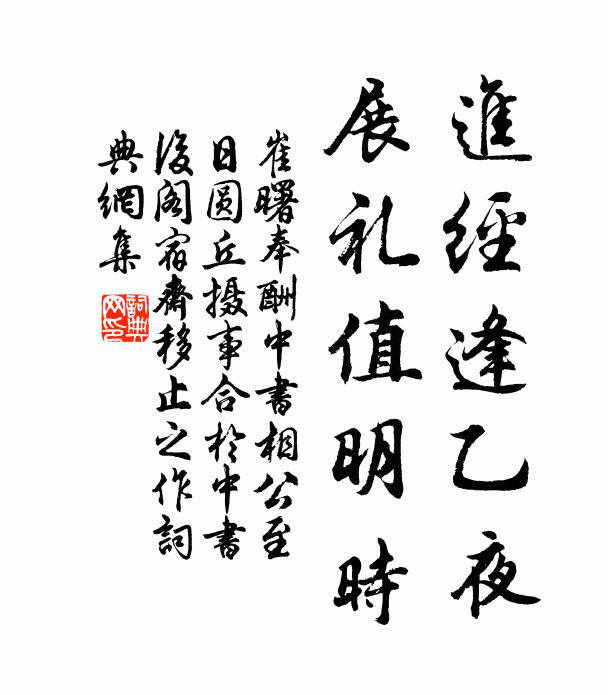 進經逢乙夜
展礼值明時
崔曙奉酬中書相公至
日圆丘摄事合於中書
後阁宿齋移止之作詞
典網集
詞典
网印